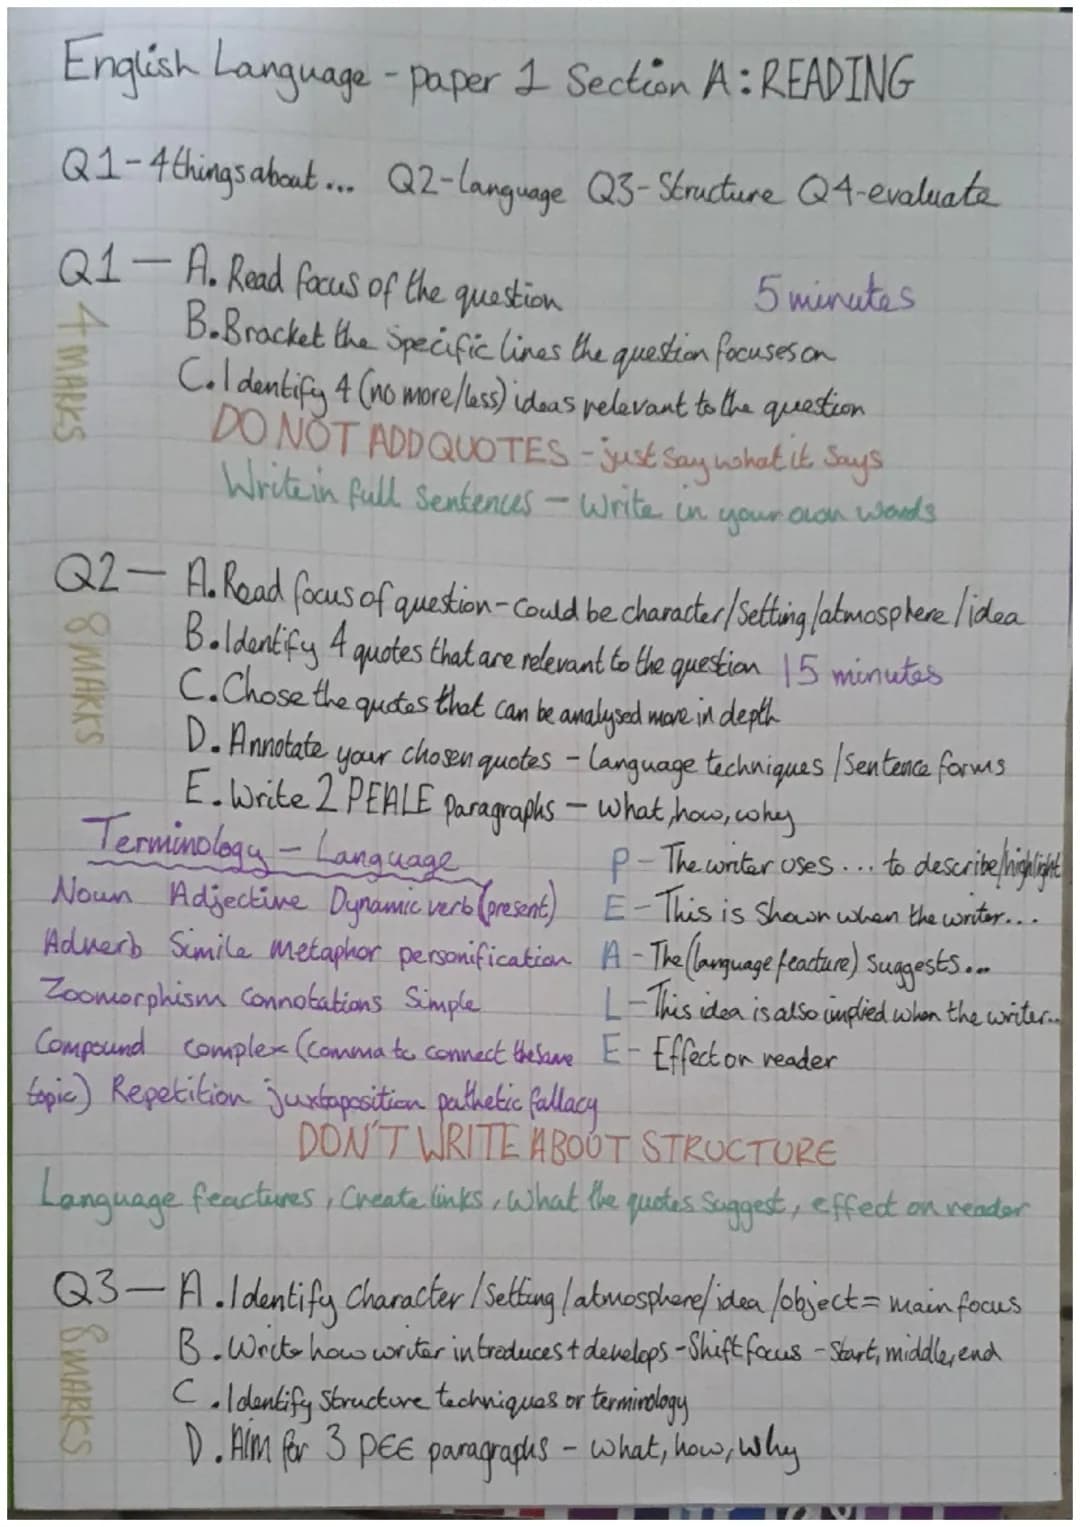 English Language - paper 1 Section A: READING
Q1-4 things about... Q2-language Q3-Structure Q4-evaluate
Q1 — A. Read focus of the question
5 minutes
4 MARKS
B. Bracket the specific lines the question focuses on
C. Identify 4 (no more/less) ideas relevant to the question
DO NOT ADD QUOTES - just say what it says
Write in full sentences - Write in your own words
Q2 — A. Read focus of question - could be character/setting/atmosphere/idea
8 MARKS
B. Identify 4 quotes that are relevant to the question 15 minutes
C. Chose the quotes that can be analysed more in depth
D. Annotate your chosen quotes - language techniques/sentence forms
E. Write 2 PEALE paragraphs - what, how, why
Terminology - Language
Noun Adjective Dynamic verb (present)
Adverb Simile metaphor personification
Zoomorphism connotations Simple
Compound complex (comma to connect the same
topic) Repetition juxtaposition pathetic fallacy
P - The writer uses... to describe/highlight
E - This is shown when the writer...
A - The (language feacture) suggests...
L - This idea is also implied when the writer...
E - Effect on reader
DON'T WRITE ABOUT STRUCTURE
Language feactures, Create links, What the quotes suggest, effect on reader
Q3 — A. Identify character/setting/atmosphere/idea/object = main focus
8 MARKS
B. Write how writer introduces + develops - Shift focus - Start, middle, end
C. Identify structure techniques or terminology
D. Aim for 3 PEE paragraphs - what, how, why